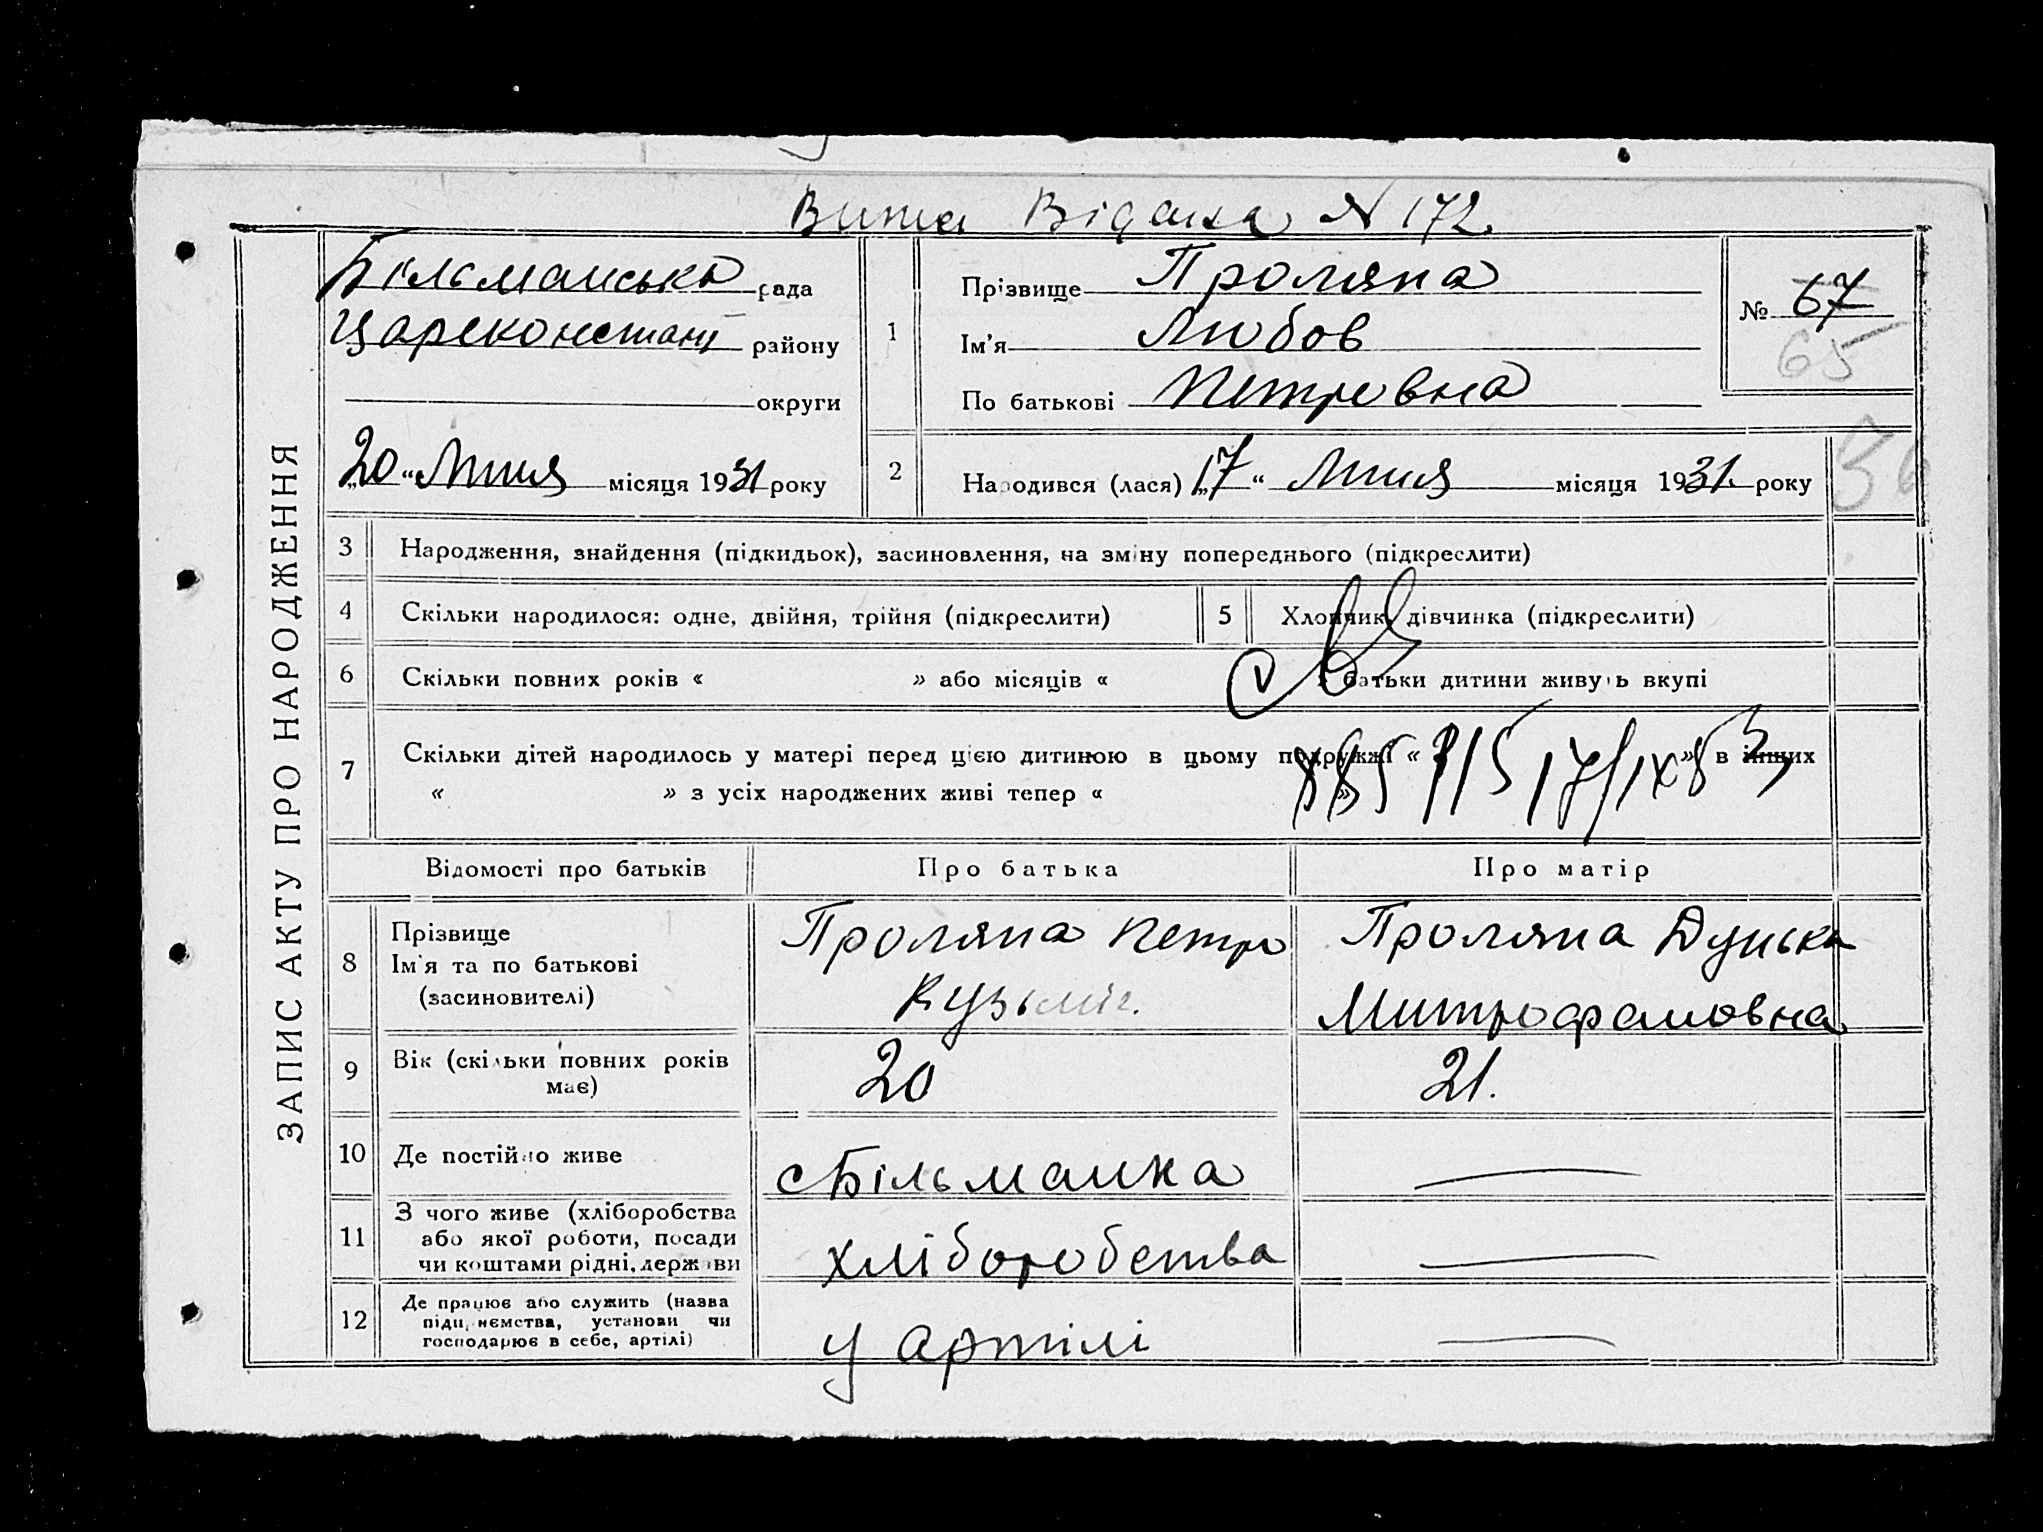 Випис Видана № 172.
ЗАПИС АКТУ ПРО НАРОДЖЕННЯ
Більманська рада
Цареконстант району
округи
„20“ Липня місяця 1931 року
1
Прізвище Проляпа
Ім'я Любов
По батькові Петровна
№ 67
65
2
Народився (лася) „17“ Липня місяця 1931 року
3 Народження, знайдення (підкидьок), засиновлення, на зміну попереднього (підкреслити)
4 Скільки народилося: одне, двійня, трійня (підкреслити)
5 Хлопчик, дівчинка (підкреслити)
6 Скільки повних років « » або місяців « » батьки дитини живуть вкупі
7 Скільки дітей народилось у матері перед цією дитиною в цьому подружжі « » в інших
« » з усіх народжених живі тепер « »
Відомості про батьків Про батька Про матір
8 Прізвище
Ім'я та по батькові
(засиновителі)
Проляпа Петро
Кузьміч.
Проляпа Дунька
Митрофановна
9 Вік (скільки повних років
має)
20
21.
10 Де постійно живе
с Більманка
11 З чого живе (хліборобства
або якої роботи, посади
чи коштами рідні, держави
хліборобства
12 Де працює або служить (назва
підприємства, установи чи
господарює в себе, артілі)
у артілі